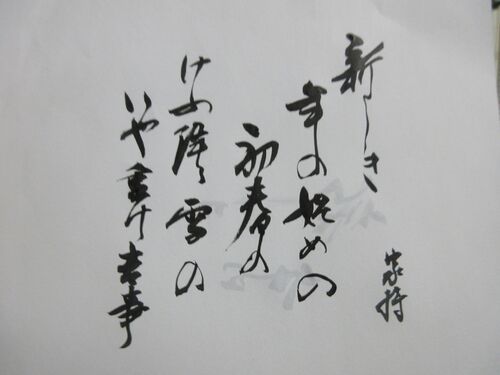 新しき
年の始めの
初春の
けふ降る雪の
いや重け吉事
家持